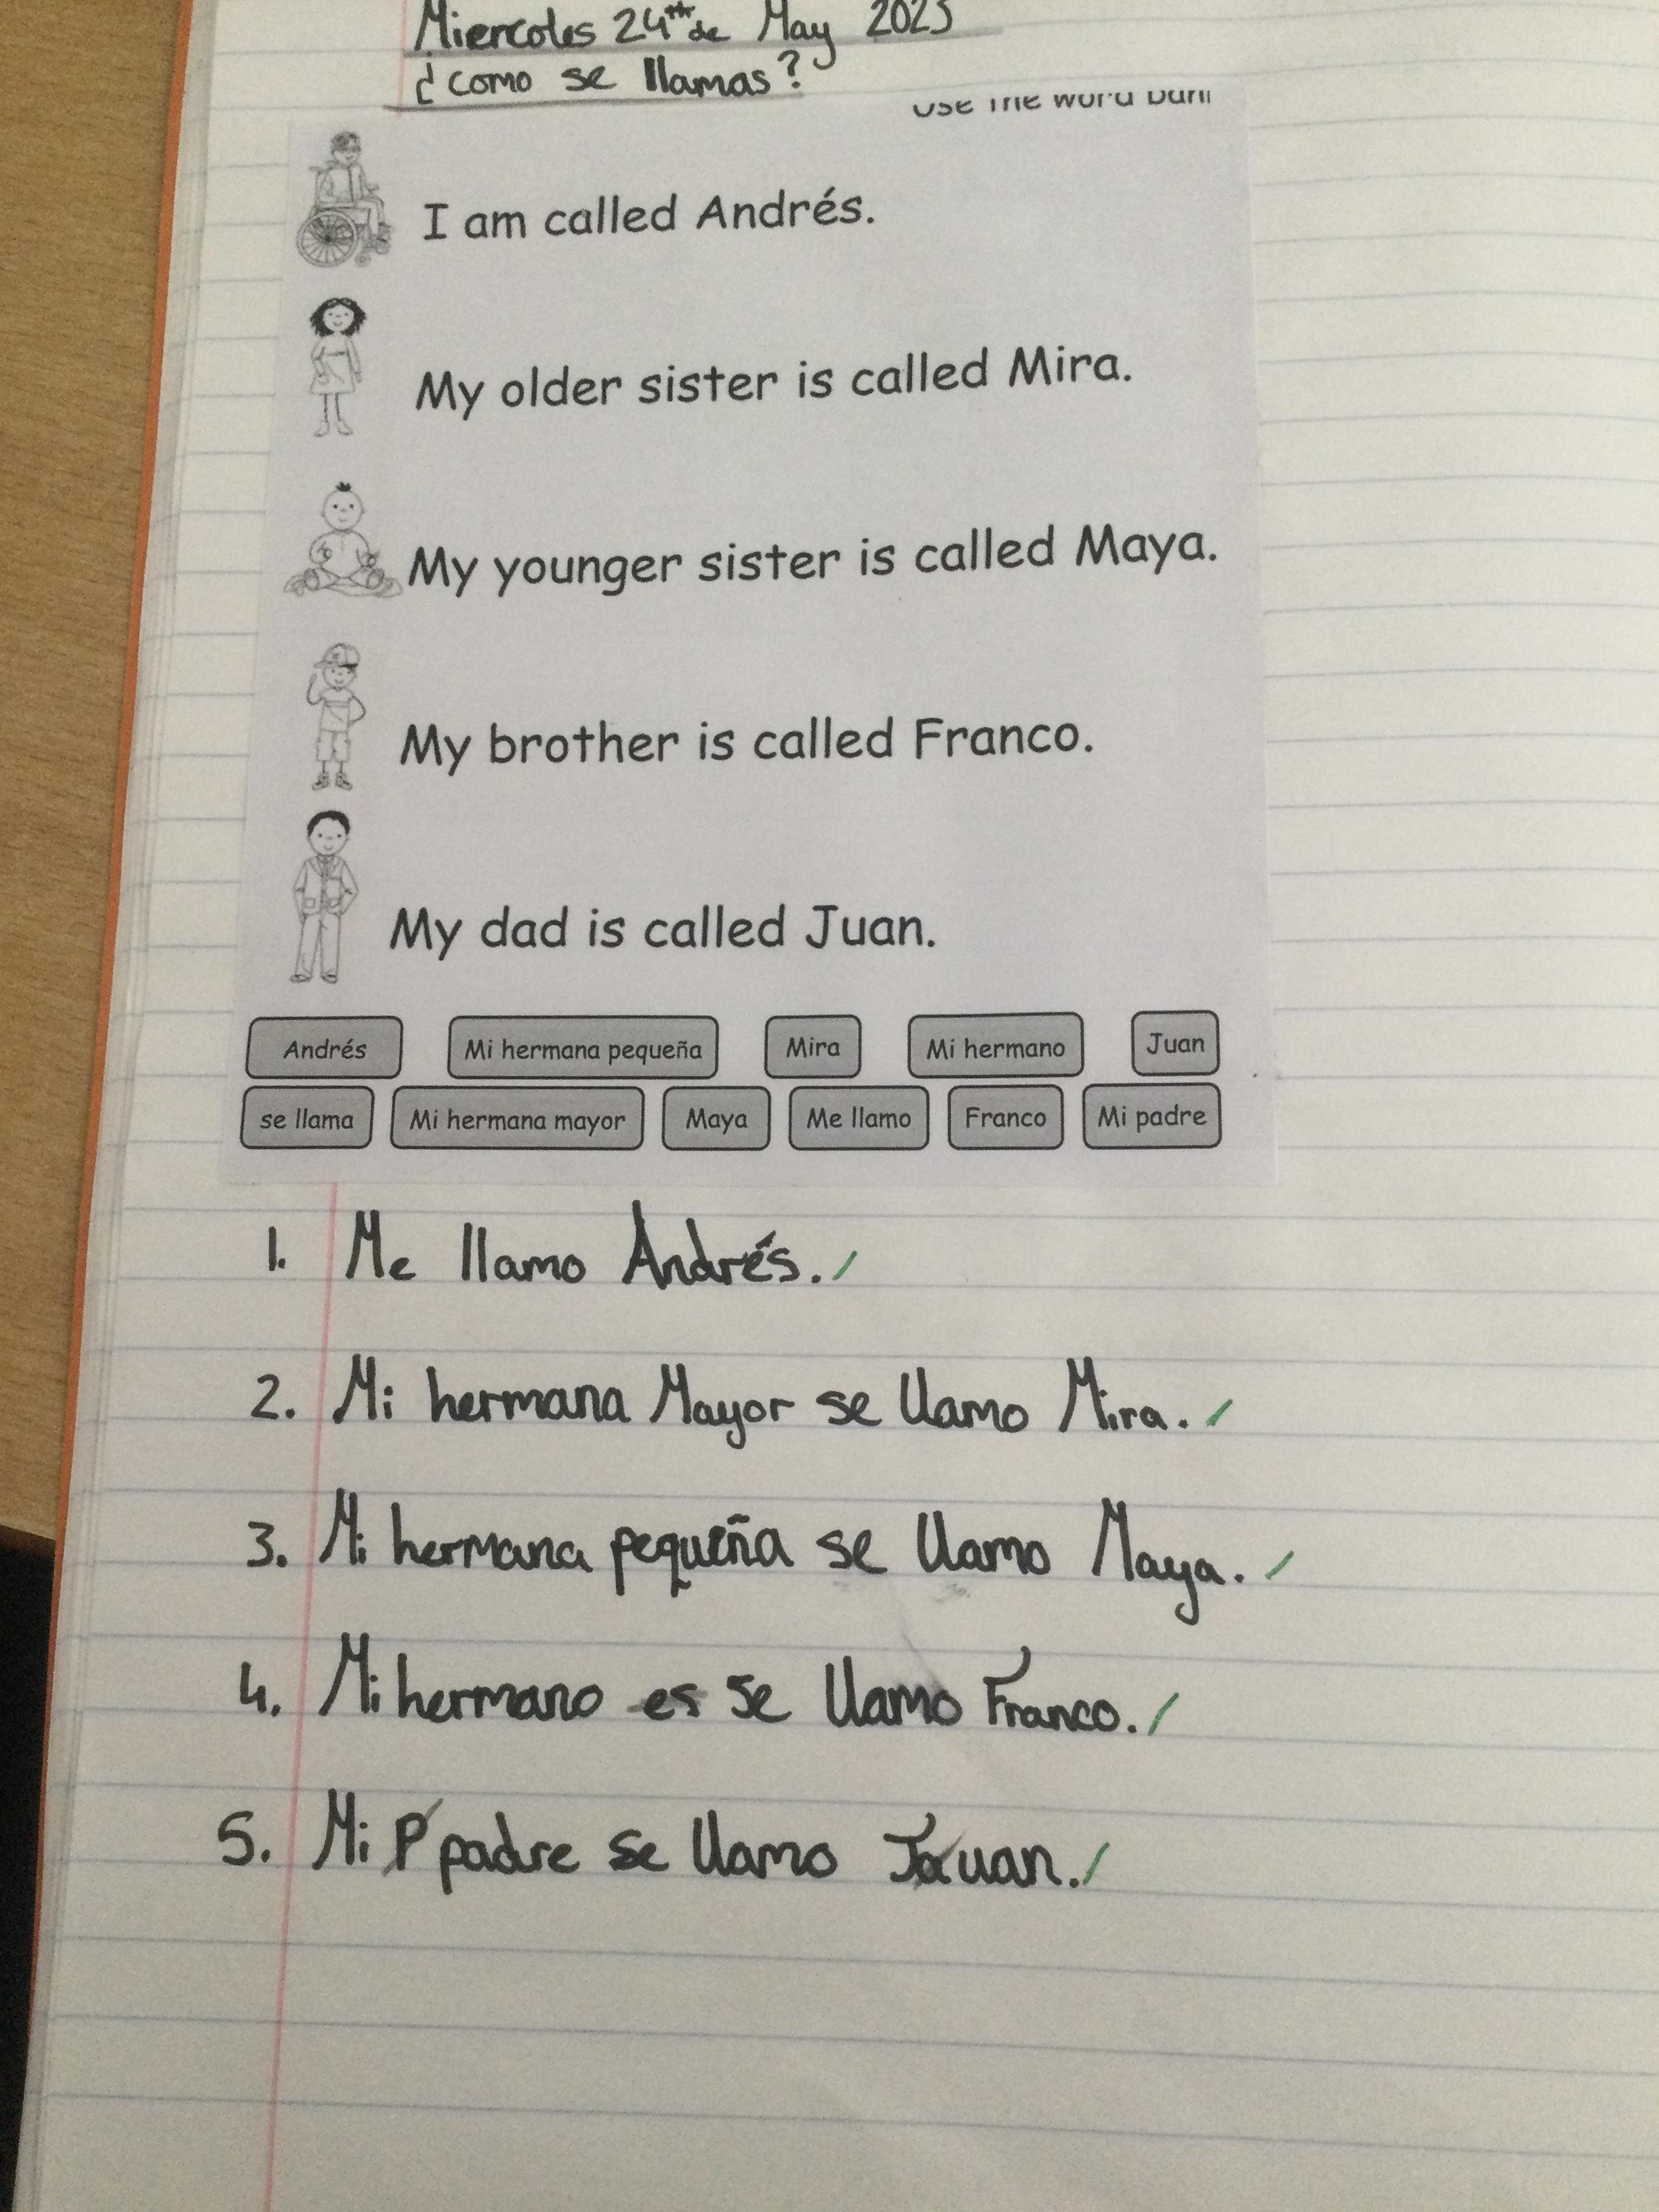 Miercoles 24th de May 2023
¿como se llamas?
Use the word bank
I am called Andrés.
My older sister is called Mira.
My younger sister is called Maya.
My brother is called Franco.
My dad is called Juan.
Andrés Mi hermana pequeña Mira Mi hermano Juan
se llama Mi hermana mayor Maya Me llamo Franco Mi padre
1. Me llamo Andrés.
2. Mi hermana Mayor se llamo Mira.
3. Mi hermana pequeña se llamo Maya.
4. Mi hermano es se llamo Franco.
5. Mi P padre se llamo Jauan.